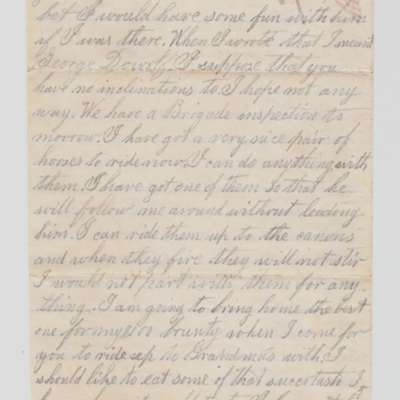 bet I would have some fun with him
if I was there. When I wrote that I meant
George Dewey. I suppose that you
have no inclinations to I hope not any
way. We have a Brigade inspection to
morrow. I have got a very nice pair of
horses to ride now. I can do anything with
them. I have got one of them so that he
will follow me around without leading
him. I can ride them up to the canons
and when they fire they will not stir
I would not part with them for any
thing. I am going to bring home the best
one for my bounty when I come for
you to ride up to with I
should like to eat some of that I